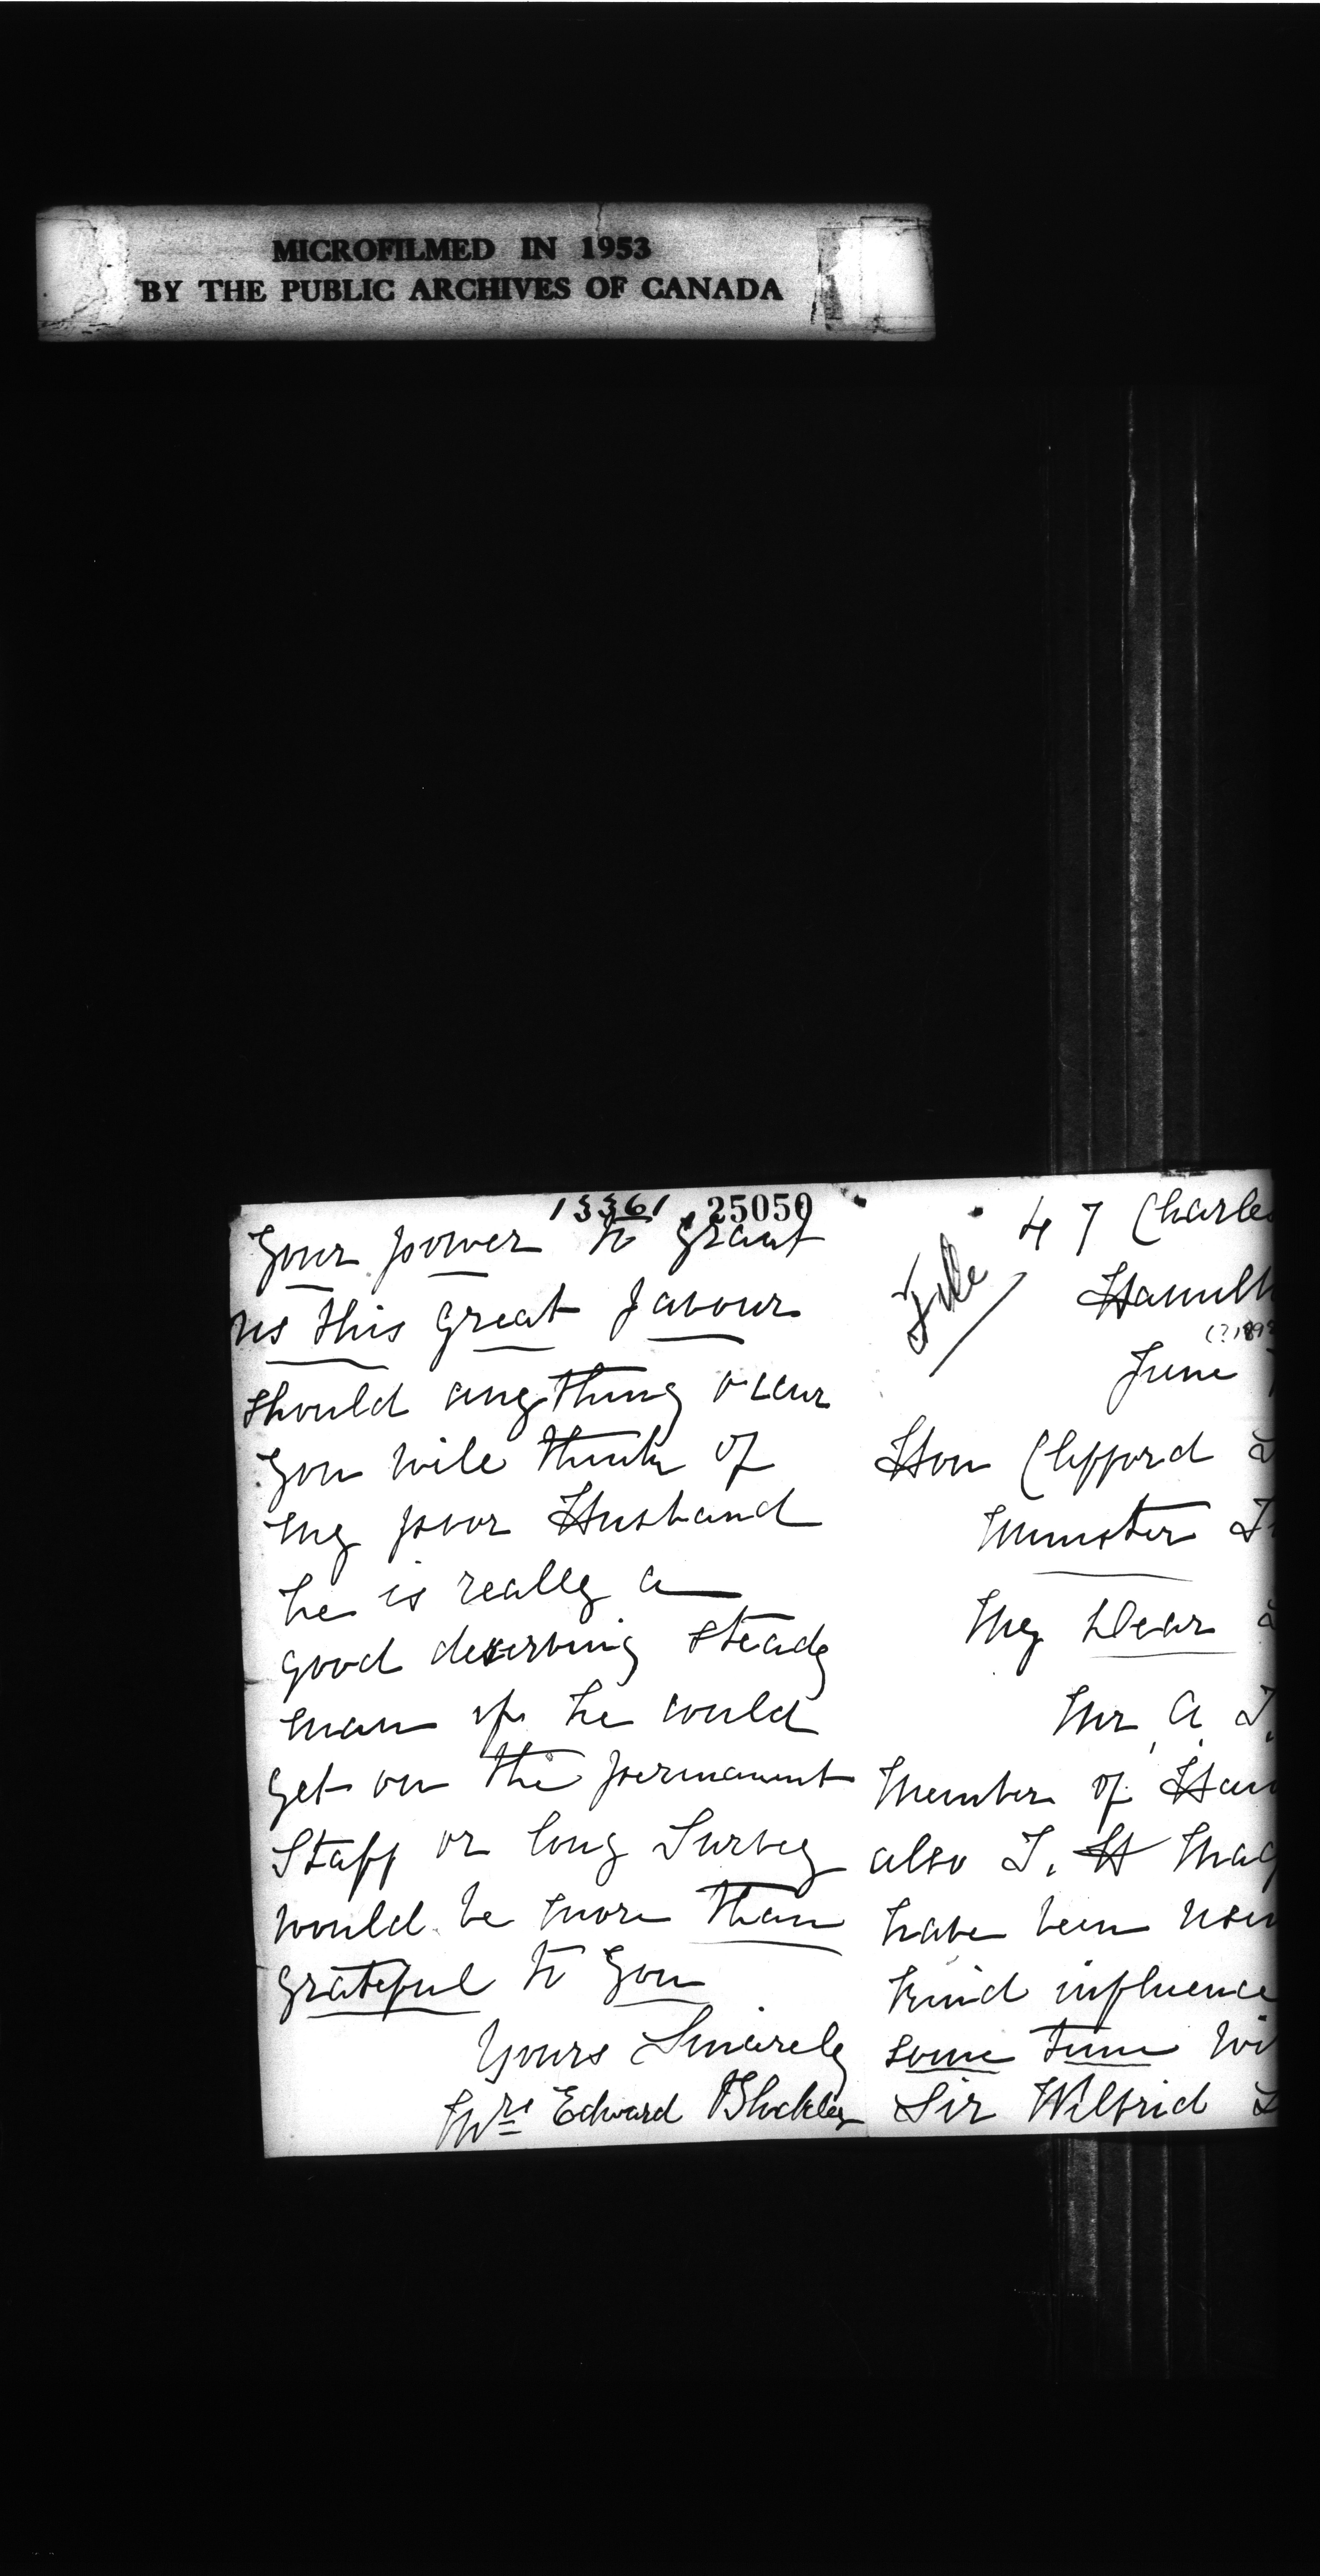 MICROFILMED IN 1953
BY THE PUBLIC ARCHIVES OF CANADA
13361 25050
your power to grant
us this great favour
should anything occur
you will think of
my poor Husband
he is really a
good deserving steady
man if he could
get on the permanent
Staff or long Survey
would be more than
grateful to you
Yours Sincerely
Mrs Edward Blockley
File
47 Charles
Hamilt
(?189
June
Hon Clifford S
Minister In
My Dear S
Mr A. T.
Member of Ham
also T. H Mac
have been usin
kind influence
some time wi
Sir Wilfrid L